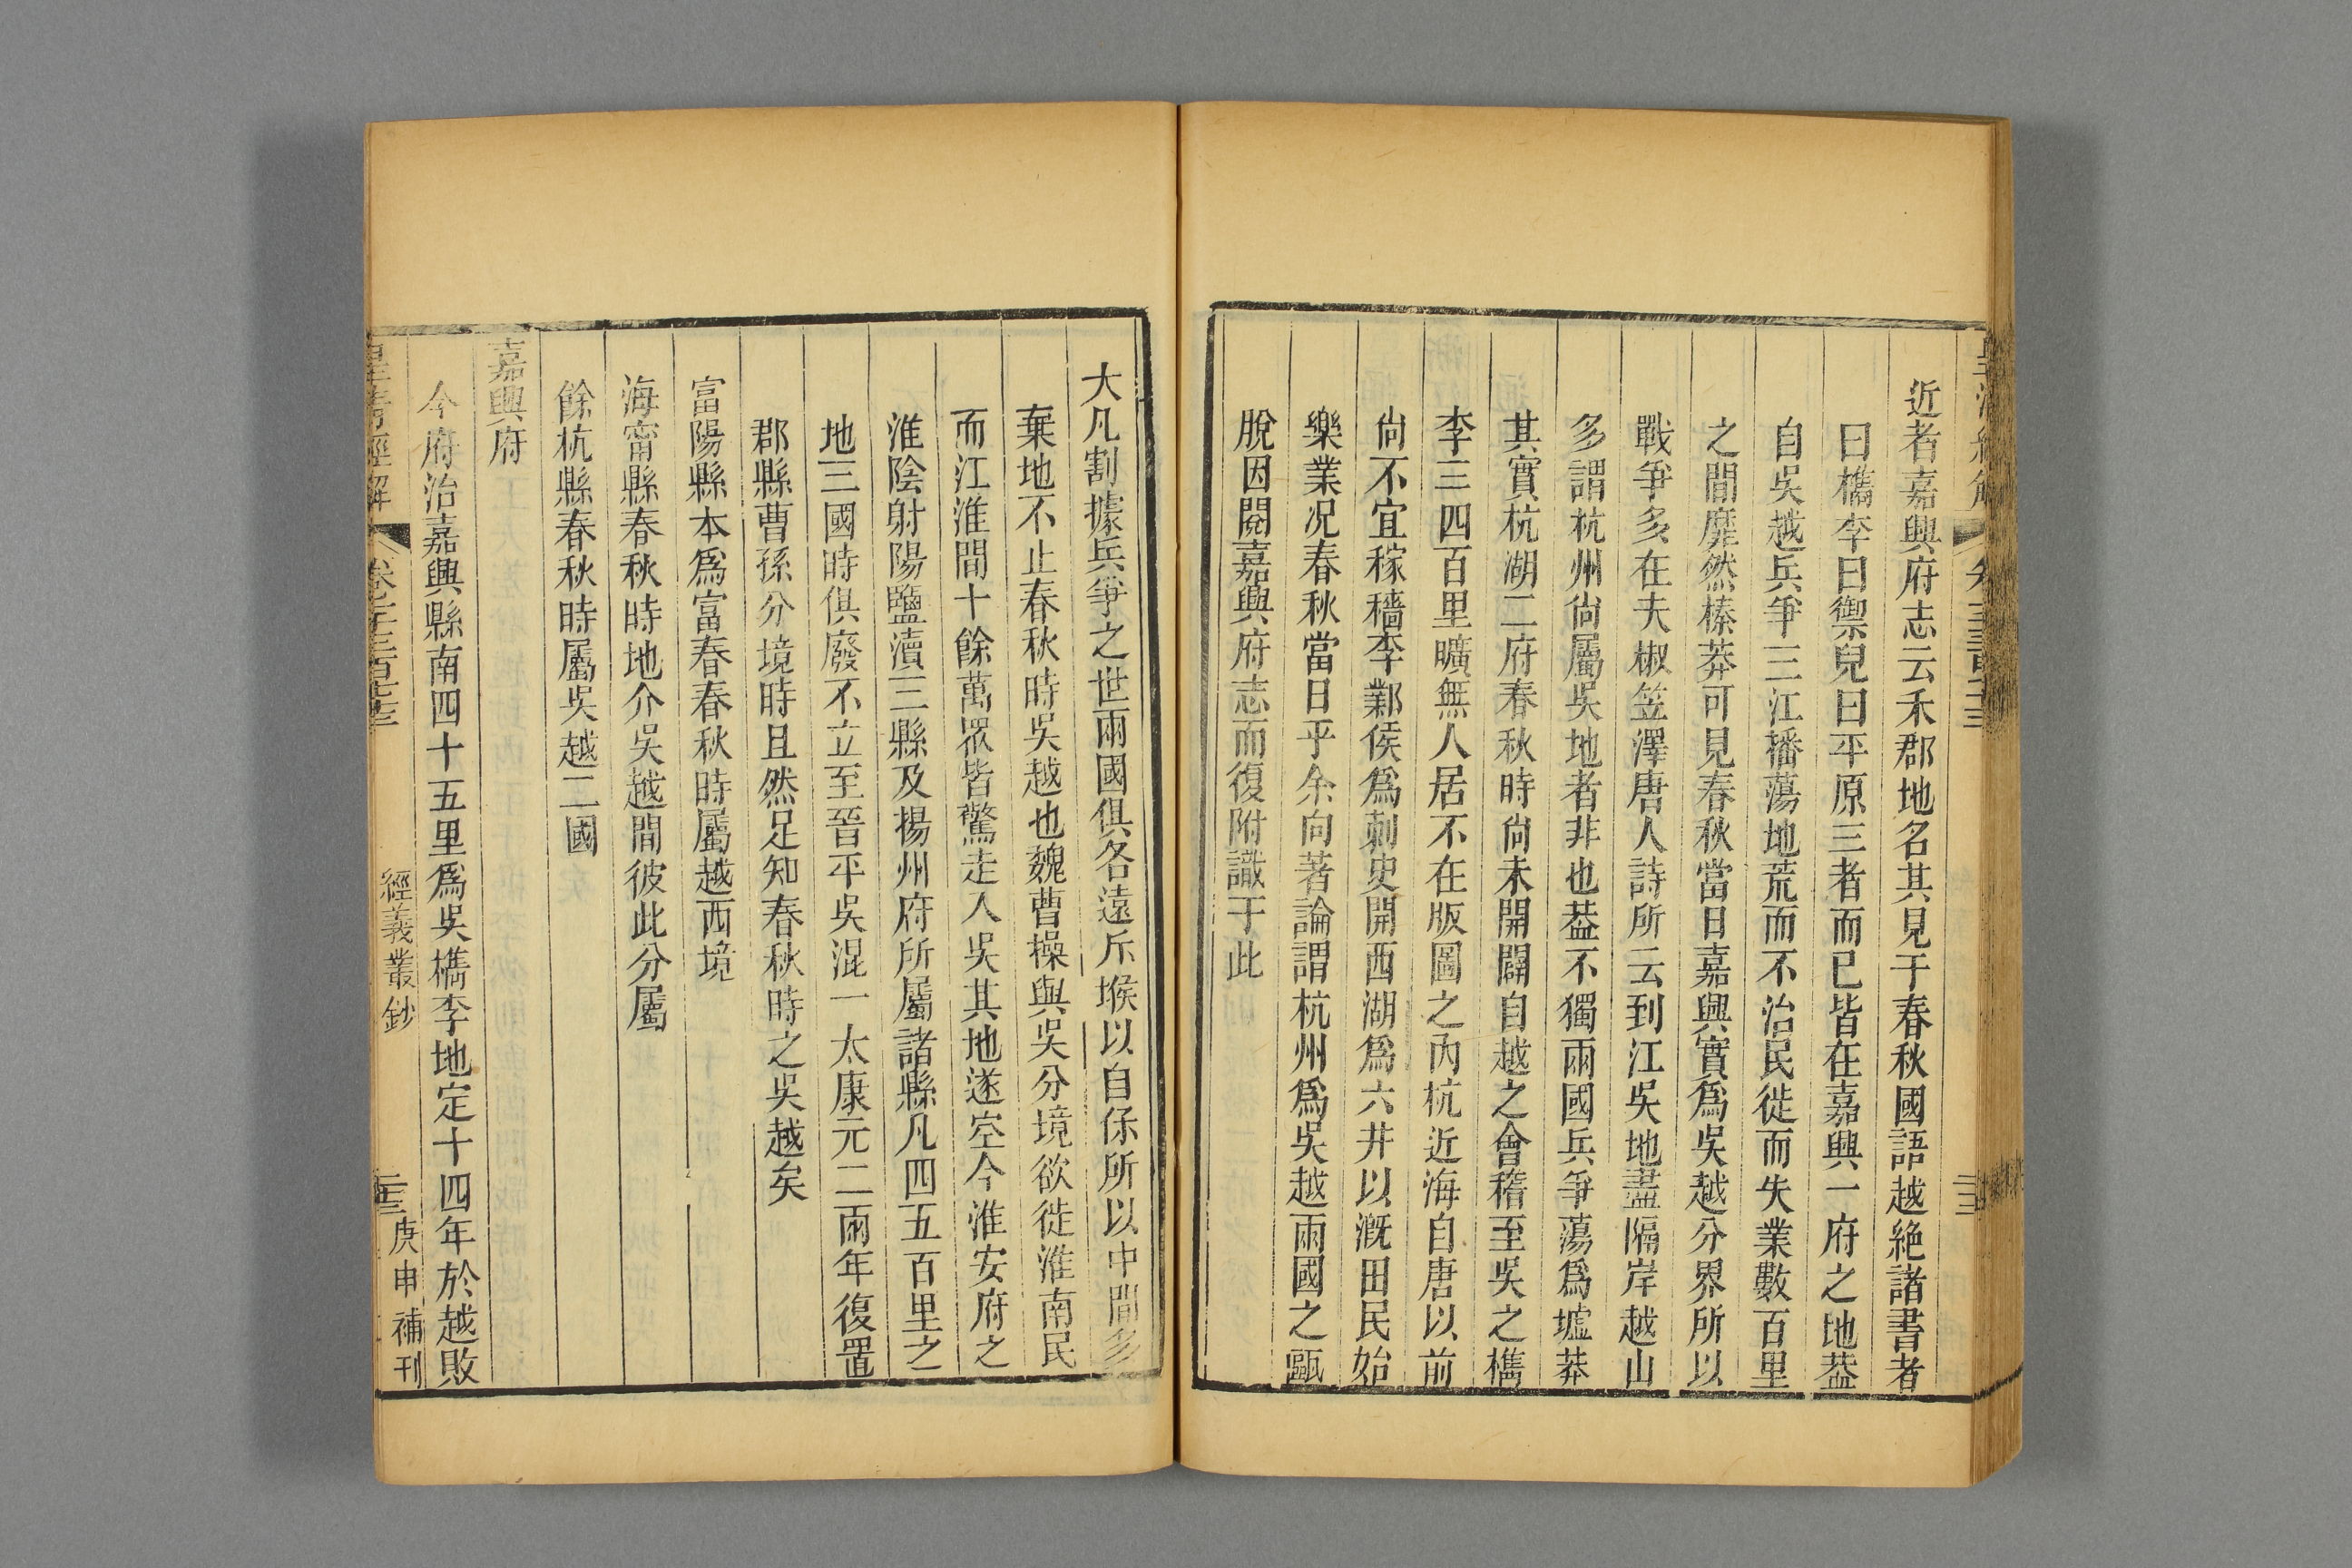 近者嘉興府志云禾郡地名其見于春秋國語越絶諸書者
曰檇李曰禦兒曰平原三者而已皆在嘉興一府之地葢
自吳越兵爭三江播蕩地荒而不治民徙而失業數百里
之間靡然榛莽可見春秋當日嘉興實爲吳越分界所以
戰爭多在夫椒笠澤唐人詩所云到江吳地盡隔岸越山
多謂杭州尙屬吳地者非也葢不獨兩國兵爭蕩爲墟莽
其實杭湖二府春秋時尙未開闢自越之會稽至吳之檇
李三四百里曠無人居不在版圖之內杭近海自唐以前
尙不宜稼穡李鄴侯爲刺史開西湖爲六井以漑田民始
樂業况春秋當日乎余向著論謂杭州爲吳越兩國之甌
脫因閱嘉興府志而復附識于此
大凡割據兵爭之世兩國俱各遠斥堠以自保所以中間多
棄地不止春秋時吳越也魏曹操與吳分境欲徙淮南民
而江淮間十餘萬眾皆驚走入吳其地遂空今淮安府之
淮陰射陽鹽瀆三縣及揚州府所屬諸縣凡四五百里之
地三國時俱廢不立至晉平吳混一太康元二兩年復置
郡縣曹孫分境時且然足知春秋時之吳越矣
富陽縣本爲富春春秋時屬越西境
海甯縣春秋時地介吳越間彼此分屬
餘杭縣春秋時屬吳越二國
嘉興府
今府治嘉興縣南四十五里爲吳檇李地定十四年於越敗
皇淸經解
經義叢鈔
庚申補刊